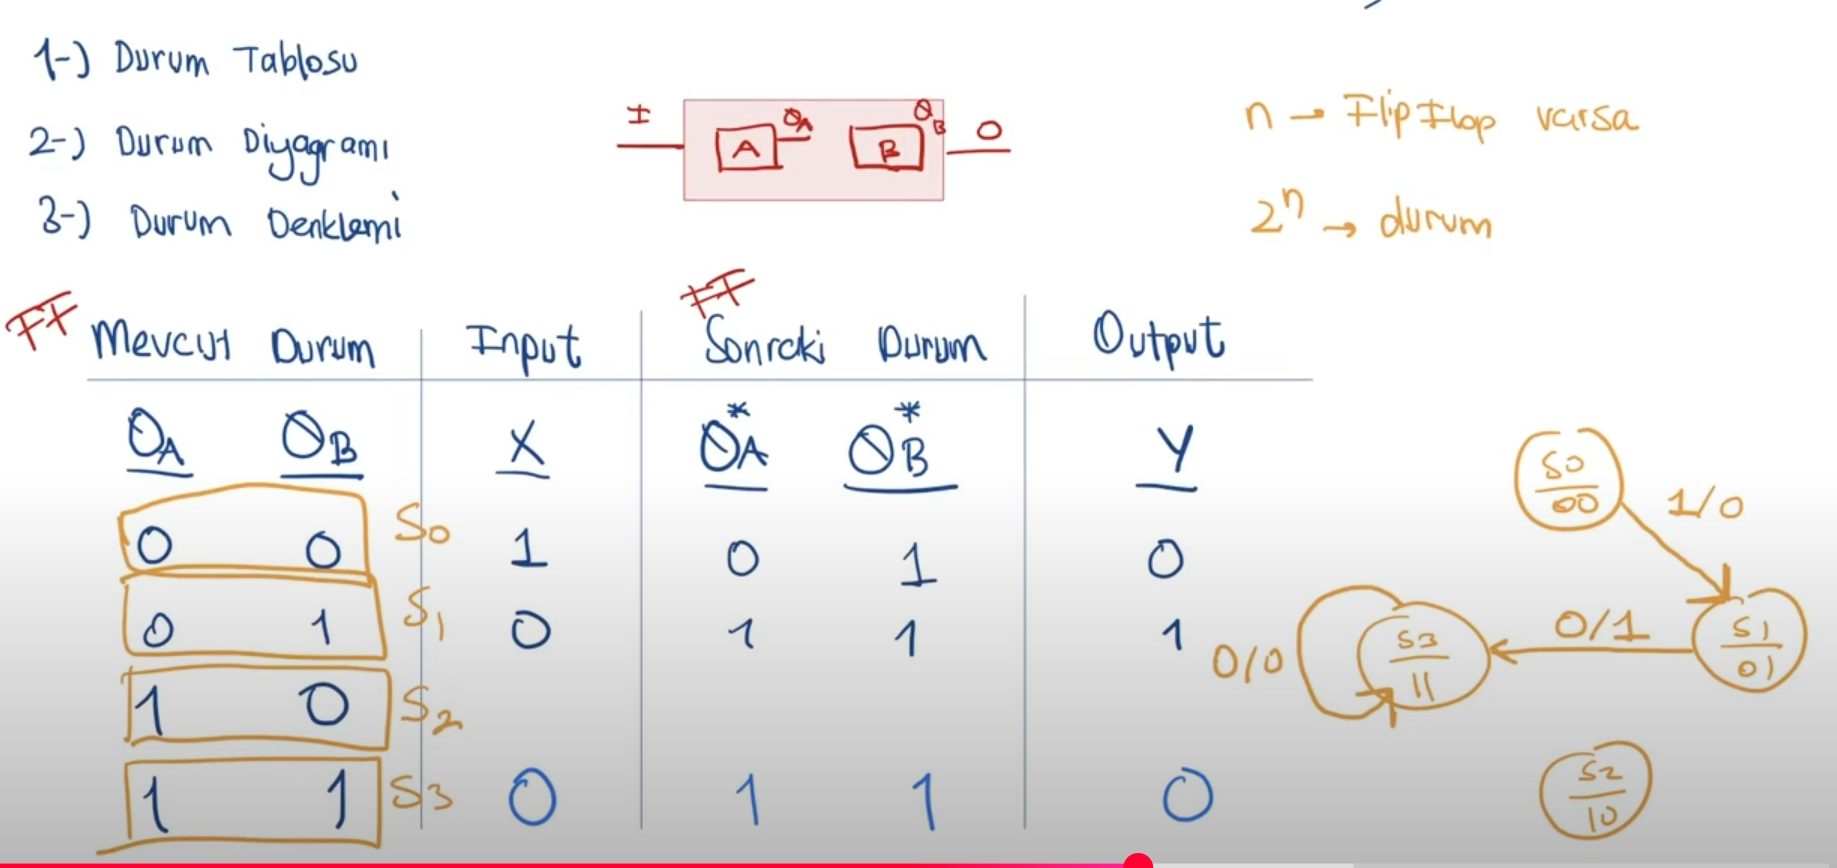 1-) Durum Tablosu
2-) Durum Diyagramı
3-) Durum Denklemi
I A QA B QB O
n → FlipFlop varsa
2ⁿ → durum
FF FF
Mevcut Durum Input Sonraki Durum Output
QA QB X QA* QB* Y
0 0 S0 1 0 1 0
0 1 S1 0 1 1 1
1 0 S2
1 1 S3 0 1 1 0
S0
00
1/0
S1
01
0/1
S3
11
0/0
S2
10